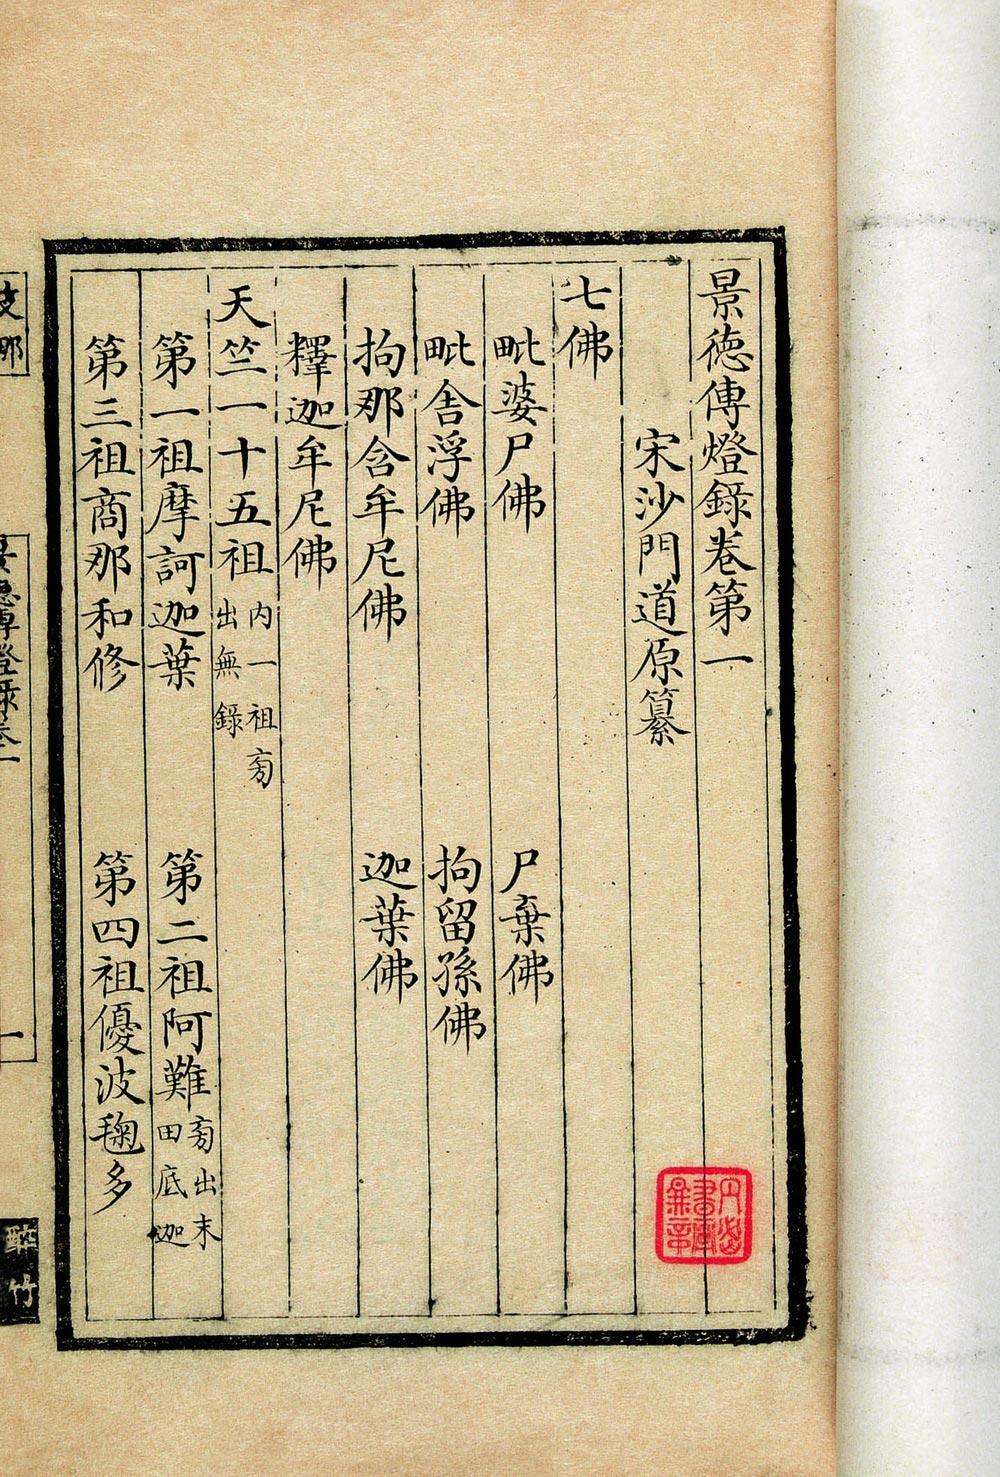 景德傳燈錄卷第一
宋沙門道原纂
七佛
毗婆尸佛　尸棄佛
毗舍浮佛　拘留孫佛
拘那含牟尼佛　迦葉佛
釋迦牟尼佛
天竺一十五祖 內一祖旁出無錄
第一祖摩訶迦葉　第二祖阿難 旁出末田底迦
第三祖商那和修　第四祖優波毱多
支那
景德傳燈錄卷一
一